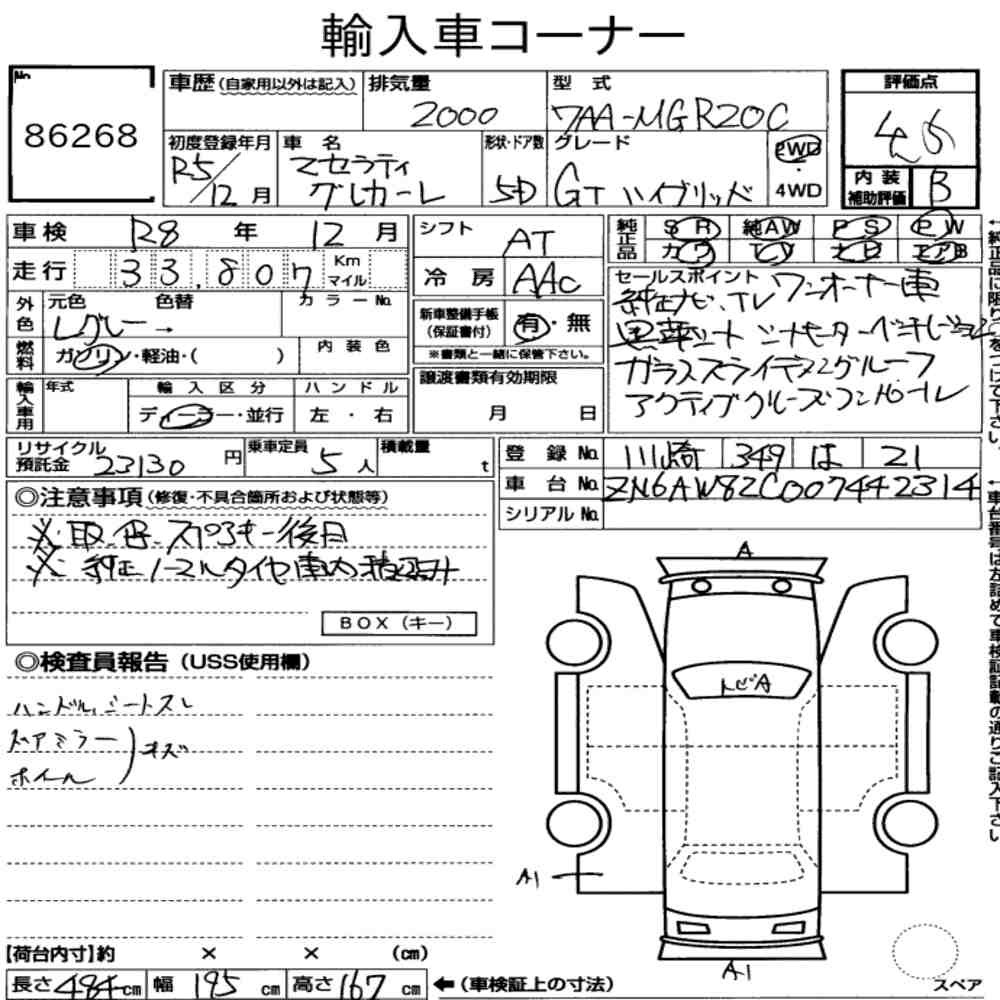 輸入車コーナー
No.
86268
車歴(自家用以外は記入)
排気量
2000
型式
7AA-MGR20C
評価点
初度登録年月
R5/12月
車名
マセラティ
グレカーレ
形状・ドア数
5D
グレード
GT ハイブリッド
2WD
・
4WD
内装
補助評価
B
車検 R8 年 12 月
走行 33,807 Km マイル
外色
元色
Lグレー
色替
→
カラーNo.
燃料
ガソリン・軽油・( )
内装色
輸入車用
年式
輸入区分
ディーラー・並行
ハンドル
左・右
シフト
AT
冷房
AAC
新車整備手帳
(保証書付)
有・無
※書類と一緒に保管下さい。
譲渡書類有効期限
月 日
純正品
SR 純AW PS PW
カワ TV ナビ エアB
セールスポイント
ワンオーナー車
純正ナビ、TV
黒革シート シートヒーター ベンチレーション
ガラススライディングルーフ
アクティブクルーズコントロール
リサイクル
預託金
23130 円
乗車定員
5 人
積載量
t
登録No.
川崎 349 は 21
車台No.
ZN6AW82C007442314
シリアルNo.
◎注意事項(修復・不具合箇所および状態等)
※取、保、スペアキー後日
※純正ノーマルタイヤ車内積込み
BOX(キー)
◎検査員報告(USS使用欄)
ハンドル、シートスレ
ドアミラー
ホイール
キズ
A
トビA
A1
A1
[荷台内寸]約 × × (cm)
長さ 484 cm 幅 195 cm 高さ 167 cm
←(車検証上の寸法)
スペア
←車台番号は左詰めて車検証記載の通りご記入下さい